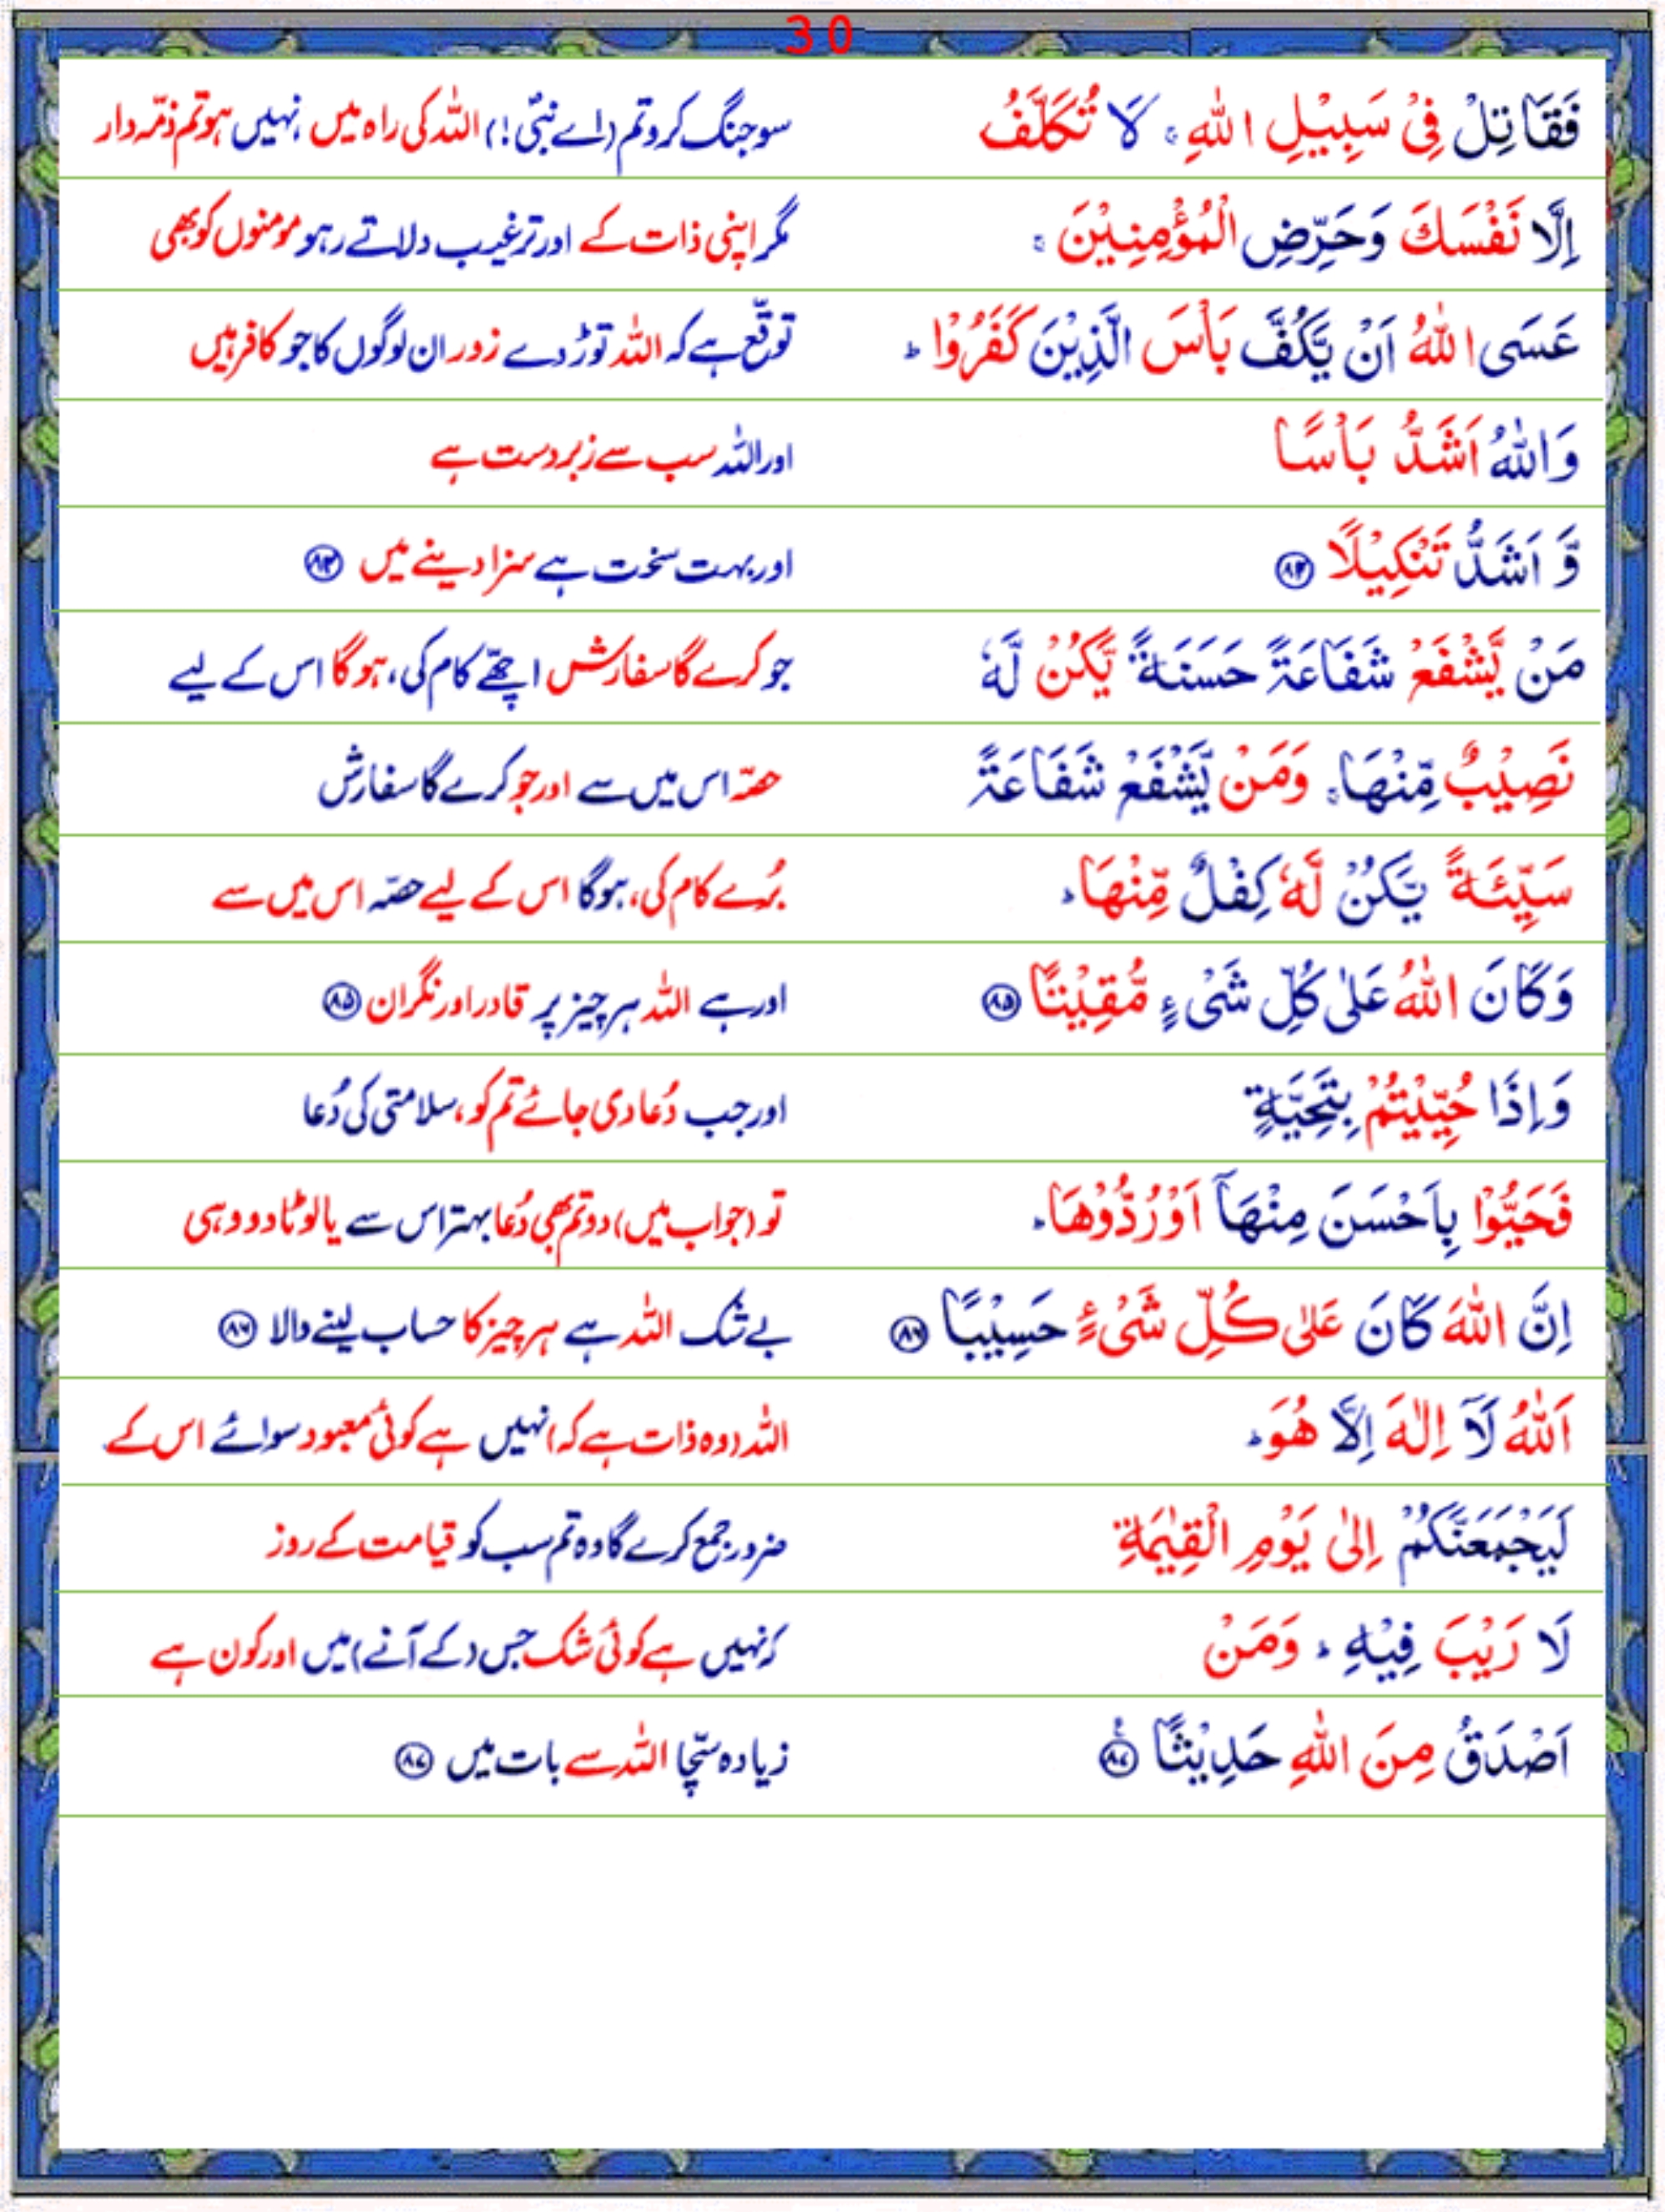 30
فَقَاتِلْ فِیْ سَبِیْلِ اللّٰهِ ۚ لَا تُكَلَّفُ سو جنگ کرو تم (اے نبیؐ!) اللہ کی راہ میں، نہیں ہو تم ذمّہ دار
اِلَّا نَفْسَكَ وَحَرِّضِ الْمُؤْمِنِیْنَ ۚ مگر اپنی ذات کے اور ترغیب دلاتے رہو مومنوں کو بھی
عَسَی اللّٰهُ اَنْ یَّكُفَّ بَاْسَ الَّذِیْنَ كَفَرُوْا ؕ توقّع ہے کہ اللہ توڑ دے زور ان لوگوں کا جو کافر ہیں
وَاللّٰهُ اَشَدُّ بَاْسًا اور اللہ سب سے زبردست ہے
وَّ اَشَدُّ تَنْكِیْلًا ﴿۸۴﴾ اور بہت سخت ہے سزا دینے میں ﴿۸۴﴾
مَنْ یَّشْفَعْ شَفَاعَةً حَسَنَةً یَّكُنْ لَّهٗ جو کرے گا سفارش اچھّے کام کی، ہوگا اس کے لیے
نَصِیْبٌ مِّنْهَا ۚ وَمَنْ یَّشْفَعْ شَفَاعَةً حصّہ اس میں سے اور جو کرے گا سفارش
سَیِّئَةً یَّكُنْ لَّهٗ كِفْلٌ مِّنْهَا ؕ بُرے کام کی، ہوگا اس کے لیے حصّہ اس میں سے
وَكَانَ اللّٰهُ عَلٰی كُلِّ شَیْءٍ مُّقِیْتًا ﴿۸۵﴾ اور ہے اللہ ہر چیز پر قادر اور نگران ﴿۸۵﴾
وَاِذَا حُیِّیْتُمْ بِتَحِیَّةٍ اور جب دُعا دی جائے تم کو، سلامتی کی دُعا
فَحَیُّوْا بِاَحْسَنَ مِنْهَاۤ اَوْ رُدُّوْهَا ؕ تو (جواب میں) دو تم بھی دُعا بہتر اس سے یا لوٹا دو وہی
اِنَّ اللّٰهَ كَانَ عَلٰی كُلِّ شَیْءٍ حَسِیْبًا ﴿۸۶﴾ بے شک اللہ ہے ہر چیز کا حساب لینے والا ﴿۸۶﴾
اَللّٰهُ لَاۤ اِلٰهَ اِلَّا هُوَ ؕ اللہ (وہ ذات ہے کہ) نہیں ہے کوئی معبود سوائے اس کے
لَیَجْمَعَنَّكُمْ اِلٰی یَوْمِ الْقِیٰمَةِ ضرور جمع کرے گا وہ تم سب کو قیامت کے روز
لَا رَیْبَ فِیْهِ ؕ وَمَنْ کہ نہیں ہے کوئی شک جس (کے آنے) میں اور کون ہے
اَصْدَقُ مِنَ اللّٰهِ حَدِیْثًا ﴿۸۷﴾ زیادہ سچّا اللہ سے بات میں ﴿۸۷﴾